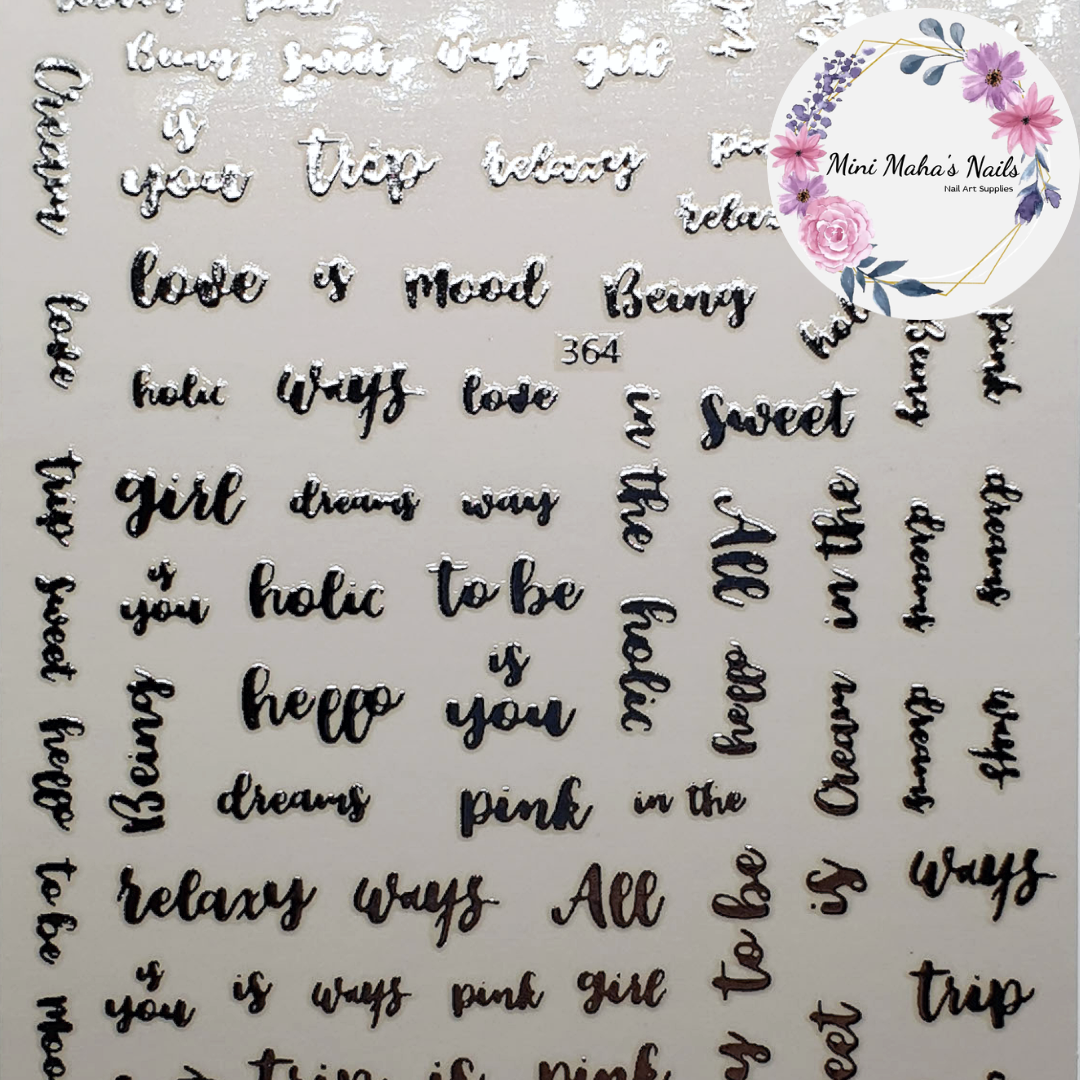 Being sweet ways girl
Cream
is
you trip relaxy
Mini Maha's Nails
Nail Art Supplies
love is mood Being
love
364
holic ways love in sweet Being pink
trip girl dreams way the All in the dreams dreams
is
you holic to be
sweet holic
is
hello you
Being Cream dreams ways
hello dreams pink in the
to be relaxy ways All to be is ways
is
you is ways pink girl trip
trip is pink